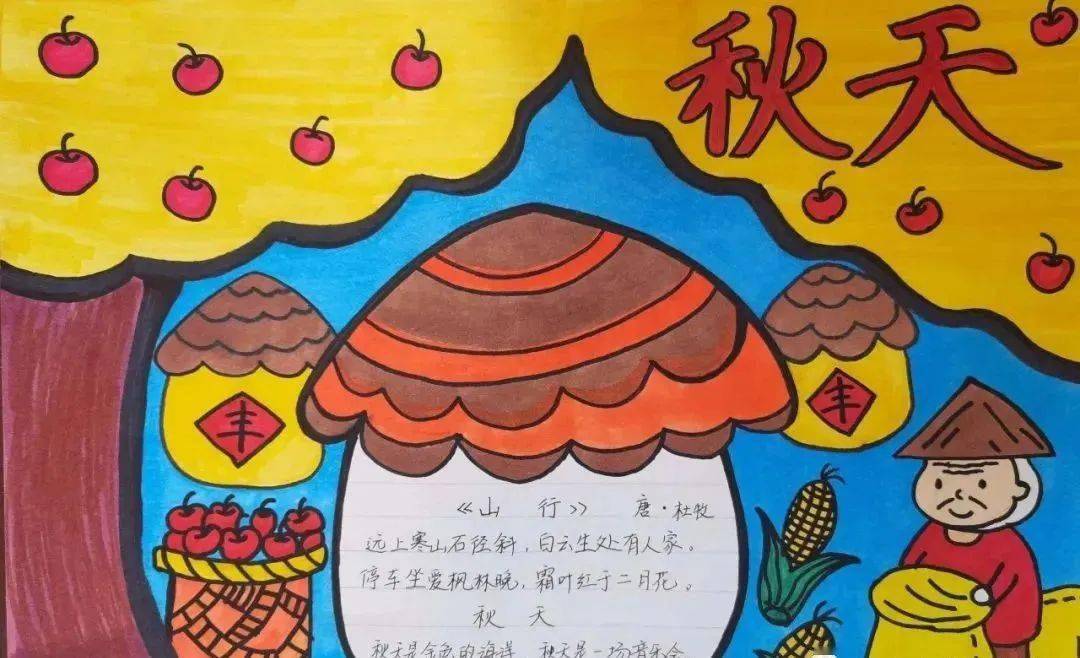 秋天
丰
丰
《山 行》 唐·杜牧
远上寒山石径斜，白云生处有人家。
停车坐爱枫林晚，霜叶红于二月花。
秋 天
秋天是金色的海洋 秋天是一场音乐会